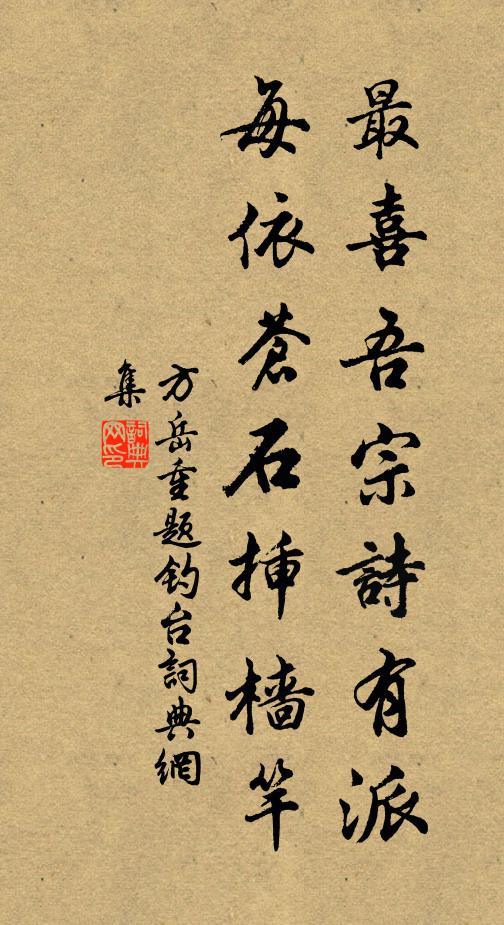 最喜吾宗詩有派
每依蒼石插檣竿
方岳重題釣台詞典網
集
詞典
网印